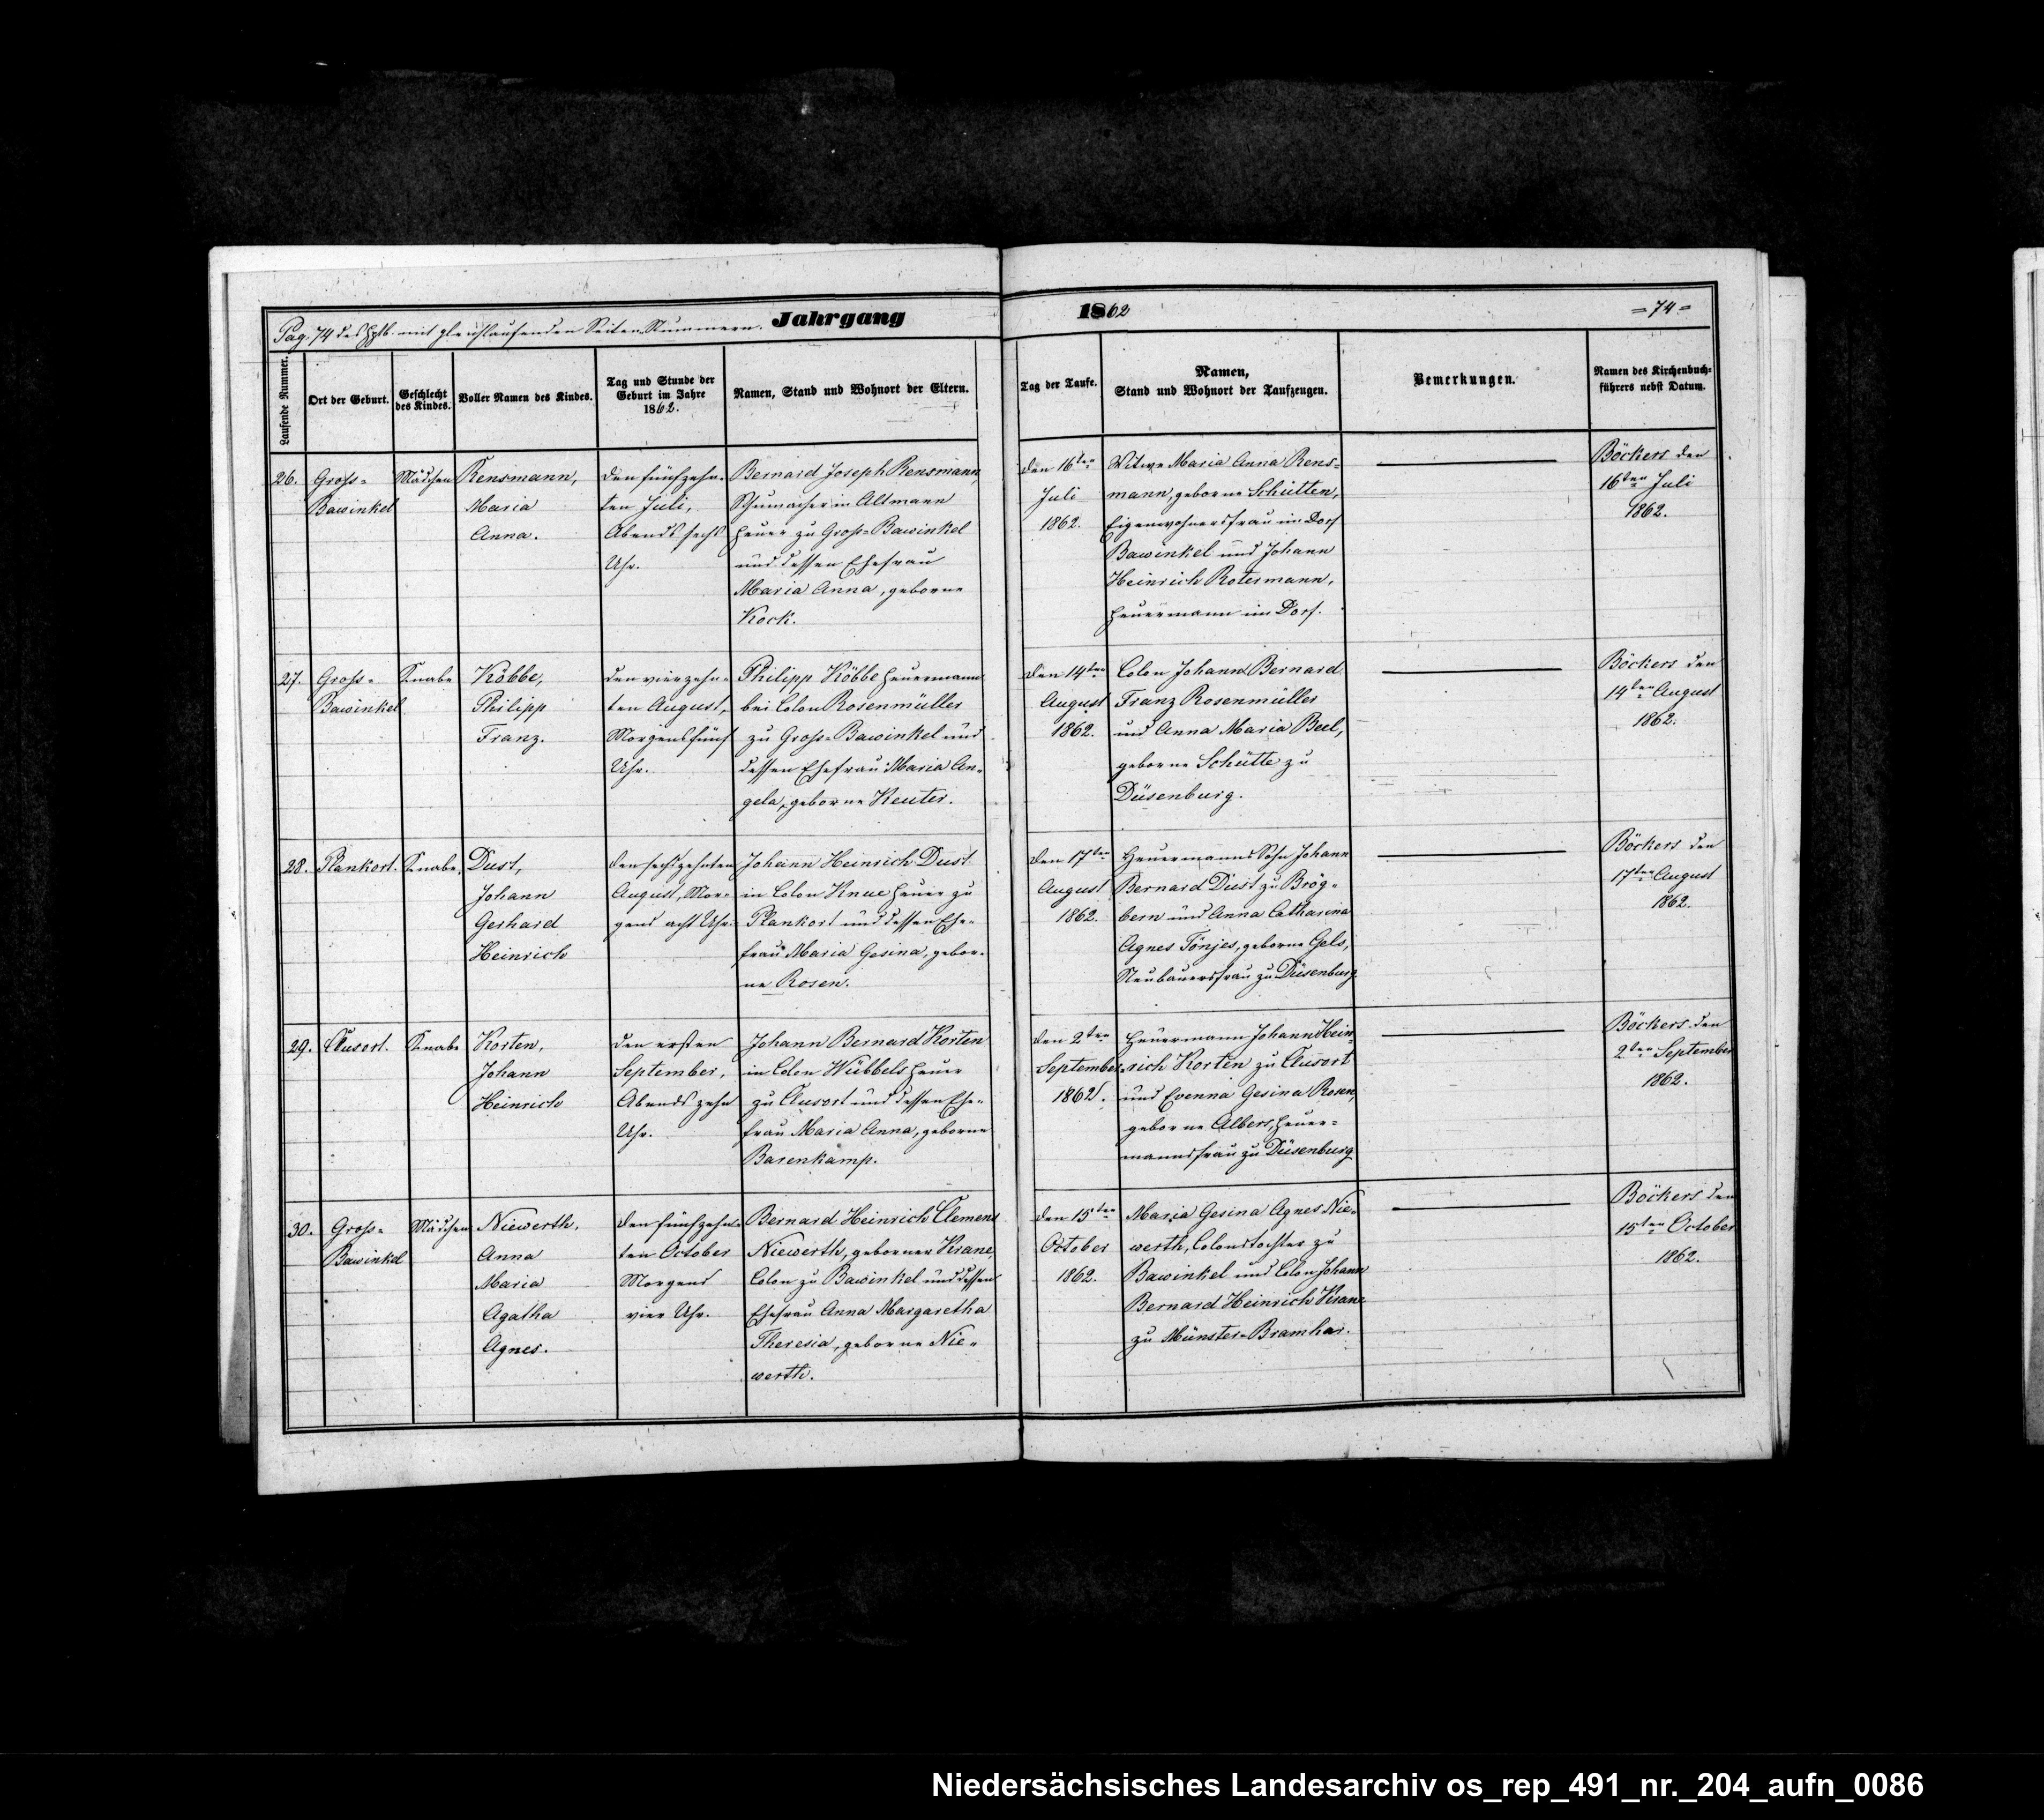 Pag. 74 des Hptb. mit gleichlaufenden Seiten-Nummern. Jahrgang 1862 =74=
Laufende Nummer.
Ort der Geburt.
Geschlecht
des Kindes.
Voller Namen des Kindes.
Tag und Stunde der
Geburt im Jahre
1862.
Namen, Stand und Wohnort der Eltern.
Tag der Taufe.
Namen,
Stand und Wohnort der Taufzeugen.
Bemerkungen.
Namen des Kirchenbuch-
führers nebst Datum.
26.
Gross-
Bawinkel
Mädchen
Rensmann,
Maria
Anna.
den fünfzehn-
ten Juli,
Abends sechs
Uhr.
Bernard Joseph Rensmann,
Schumacher in Altmann
Heuer zu Gross-Bawinkel
und dessen Ehefrau
Maria Anna, geborne
Kock.
den 16ten
Juli
1862.
Witwe Maria Anna Rens-
mann, geborne Schütten,
Eigenwohnersfrau im Dorf
Bawinkel und Johann
Heinrich Rotermann,
Heuermann im Dorf.
Böckers den
16ten Juli
1862.
27.
Gross-
Bawinkel
Knabe
Köbbe,
Philipp
Franz.
den vierzehn-
ten August,
Morgens fünf
Uhr.
Philipp Köbbe Heuermann
bei Colon Rosenmüller
zu Gross-Bawinkel und
dessen Ehefrau Maria An-
gela, geborne Reuter.
den 14ten
August
1862.
Colon Johann Bernard
Franz Rosenmüller
und Anna Maria Beel,
geborne Schütte zu
Düsenburg.
Böckers den
14ten August
1862.
28.
Plankort.
Knabe.
Dust,
Johann
Gerhard
Heinrich
den sechszehnten
August, Mor-
gens acht Uhr.
Johann Heinrich Dust
in Colon Knue Heuer zu
Plankort und dessen Ehe-
frau Maria Gesina, gebor-
ne Rosen.
den 17ten
August
1862.
Heuermanns Sohn Johann
Bernard Dust zu Brög-
bern und Anna Catharina
Agnes Tönjes, geborne Gels,
Neubauersfrau zu Düsenburg
Böckers den
17ten August
1862.
29.
Clusort.
Knabe
Korten,
Johann
Heinrich
den ersten
September,
Abends zehn
Uhr.
Johann Bernard Korten
in Colon Wübbels Heuer
zu Clusort und dessen Ehe-
frau Maria Anna, geborne
Barenkamp.
den 2ten
September
1862.
Heuermann Johann Hein-
rich Korten zu Clusort
und Evenna Gesina Rosen,
geborne Albers, Heuer-
mannsfrau zu Düsenburg
Böckers den
2ten September
1862.
30.
Gross-
Bawinkel
Mädchen
Niewerth,
Anna
Maria
Agatha
Agnes.
den fünfzehn-
ten October
Morgens
vier Uhr.
Bernard Heinrich Clemens
Niewerth, geborner Krane,
Colon zu Bawinkel und dessen
Ehefrau Anna Margaretha
Theresia, geborne Nie-
werth.
den 15ten
October
1862.
Maria Gesina Agnes Nie-
werth, Colonstochter zu
Bawinkel und Colon Johann
Bernard Heinrich Krane
zu Münster-Bramhar.
Böckers den
15ten October
1862.
Niedersächsisches Landesarchiv os_rep_491_nr._204_aufn_0086